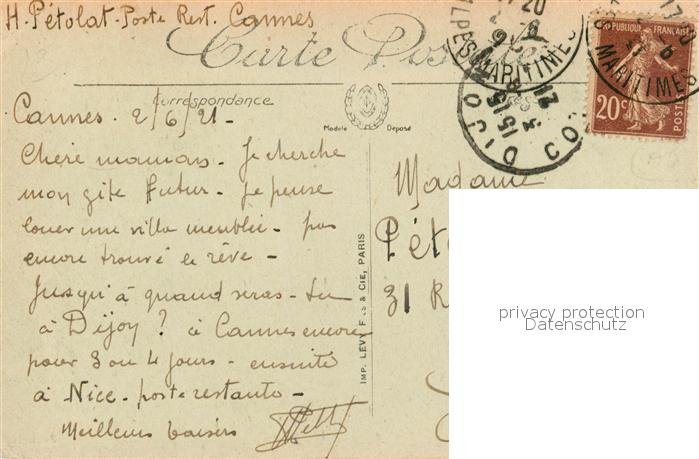 H. Pétolat - Poste Rest. Cannes
Carte Postale
Correspondance
Modèle Déposé
Cannes. 2/6/21 -
Chère maman - Je cherche
mon gîte futur - Je pense
louer une villa meublée - pas
encore trouvé le rêve -
Jusqu'à quand seras-tu
à Dijon ? à Cannes encore
pour 3 ou 4 jours - ensuite
à Nice - poste restante -
Meilleurs baisers
IMP. LEVY FILS & CIE, PARIS
Madame
Péto
31 R
ALPES MARITIMES
MARITIMES
DIJON
15 15
3 - 6
21
RÉPUBLIQUE FRANÇAISE
20c
POSTES
privacy protection
Datenschutz